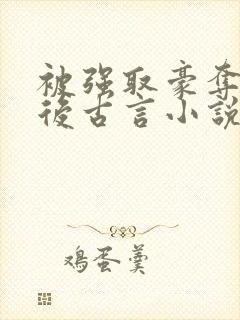 被强取豪夺
后古言小说
鸡蛋羹